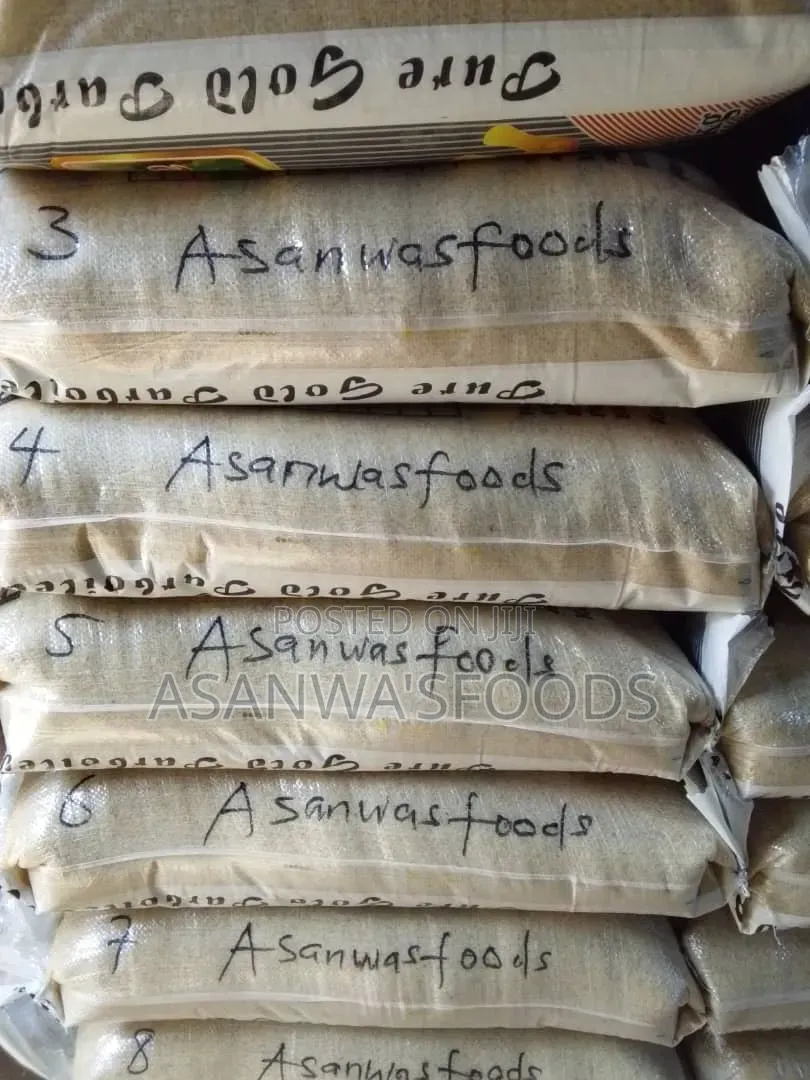 Pure Gold Parbo
3 Asanwasfoods
Pure Gold Parboiled
4 Asanwasfoods
Pure Gold Parboiled
POSTED ON JIJI
5 Asanwasfoods
ASANWA'SFOODS
Pure Gold Parboiled
6 Asanwasfoods
7 Asanwasfoods
8 Asanwasfoods